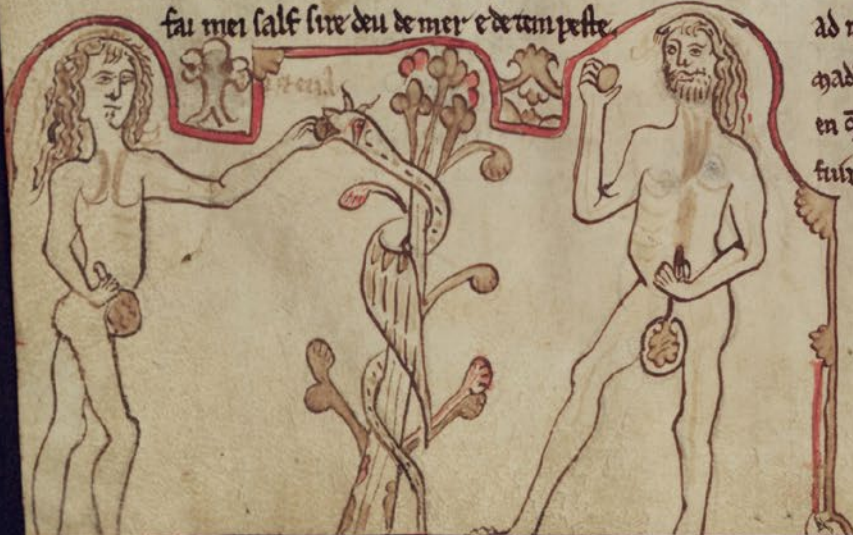 fai mei salf sire deu de mer e de tempeste
ad
en